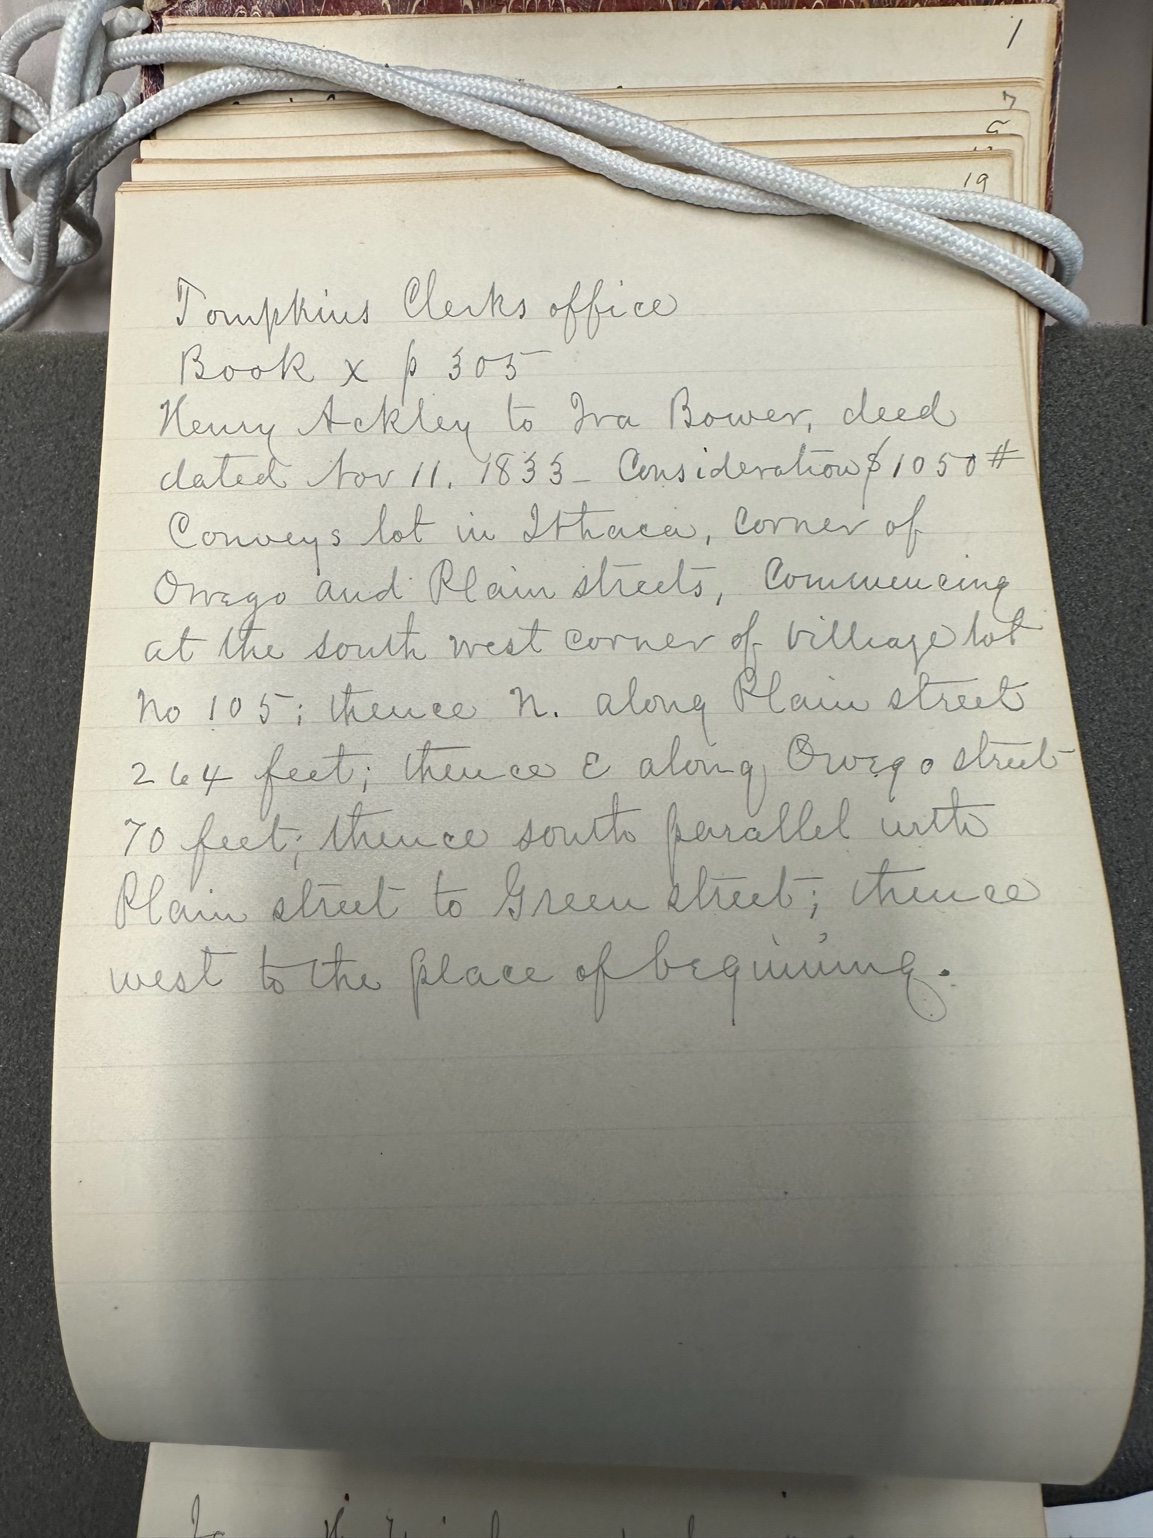 1
7
19
Tompkins Clerks office
Book x p 305
Henry Ackley to Ira Bower, deed
dated Nov 11. 1833 - Consideration $1050#
Conveys lot in Ithaca, corner of
Owego and Plain streets, Commencing
at the south west corner of village lot
No 105; thence N. along Plain street
264 feet; thence E along Owego street
70 feet; thence south parallel with
Plain street to Green street; thence
west to the place of beginning.